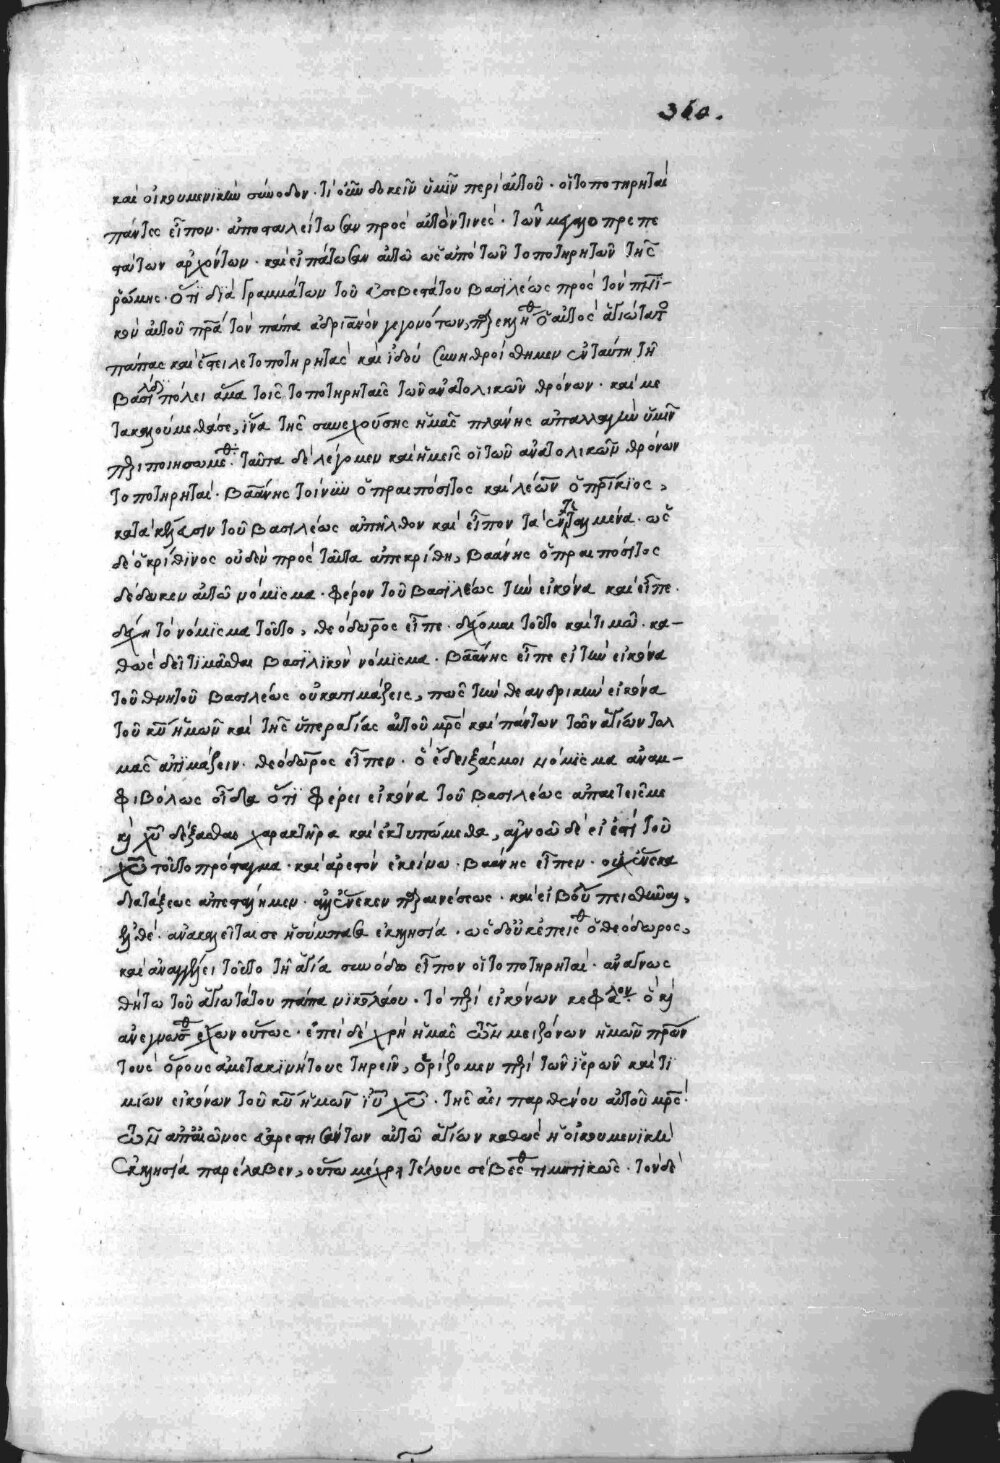 360.
καὶ οἰκουμενικὴν σύνοδον. τί οὖν δοκεῖ ὑμῖν περὶ αὐτοῦ. οἱ τοποτηρηταὶ
πάντες εἶπον. ἀποσταλείτωσαν πρὸς αὐτόν τινὲς. τῶν μεγαλοπρεπε
στάτων ἀρχόντων. καὶ εἰπάτωσαν αὐτῶ ὡς ἀπὸ τῶν τοποτηρητῶν τῆς
ῥώμης. ὅτι διὰ γραμμάτων τοῦ εὐσεβεστάτου βασιλέως πρὸς τὸν πνι-
κὸν αὐτοῦ πρα τὸν πάπα ἀδριανὸν γεγονότων, παρεκλήθ ὁ αὐτὸς ἁγιώτατο
πάπας καὶ ἔστειλε τοποτηρητὰς καὶ ἰδοὺ συνηθροίσθημεν ἐν ταύτη τῆ
βασιλίδι πόλει ἅμα τοῖς τοποτηρηταῖς τῶν ἀνατολικῶν θρόνων. καὶ με
τακαλούμεθά σε, ἵνα τῆς συνεχούσης ἡμᾶς πλάνης ἀπαλλαγὴν ὑμῖν
περιποιησώμεθ. ταῦτα δὲ λέγομεν καὶ ἡμεῖς οἱ τῶν ἀνατολικῶν θρόνων
τοποτηρηταί. βαάνης τοίνυν ὁ πραιπόσιτος καὶ λέων ὁ πρίκιος,
κατὰ κέλευσιν τοῦ βασιλέως ἀπῆλθον καὶ εἶπον τὰ ἐντεταλμένα. ὡς
δὲ ὁ κρίθινος οὐδὲν πρὸς ταῦτα ἀπεκρίθη, βαάνης ὁ πραιπόσιτος
δέδωκεν αὐτῶ νόμισμα. φέρον τοῦ βασιλέως τὴν εἰκόνα καὶ εἶπε.
δέχη τὸ νόμισμα τοῦτο, θεόδωρος εἶπε. δέχομαι τοῦτο καὶ τιμῶ. κα-
θὼς δεῖ τιμᾶσθαι βασιλικὸν νόμισμα. βαάνης εἶπε εἰ τὴν εἰκόνα
τοῦ θνητοῦ βασιλέως οὐκ ἀτιμάζεις, πῶς τὴν θεανδρικὴν εἰκόνα
τοῦ κυ ἡμῶν καὶ τῆς ὑπεραγίας αὐτοῦ μρς καὶ πάντων τῶν ἁγίων τολ
μᾶς ἀτιμάζειν. θεόδωρος εἶπεν. ὃ ἔδειξάς μοι νόμισμα ἀναμ-
φιβόλως οἶδα ὅτι φέρει εἰκόνα τοῦ βασιλέως ἀπαιτεῖς με
καὶ χυ δέξασθαι χαρακτῆρα καὶ ἐκτυπώμεθα, ἀγνοῶ δὲ εἰ ἐστὶ τοῦ
χυ τοῦτο πρόσταγμα. καὶ ἀρεστὸν ἐκείνω. βαάνης εἶπεν. οὐχ ἕνεκα
διατάξεως ἀπεστάλημεν. ἀλλ ἕνεκεν παραινέσεως. καὶ εἰ βούλει πεισθῆναι,
ἐλθέ. ἀνακαλεῖταί σε ἡ σύμπασα ἐκκλησία. ὡς δ οὐκ ἐπείσθ ὁ θεόδωρος,
καὶ ἀναγγέλλει τοῦτο τῆ ἁγία συνόδω εἶπον οἱ τοποτηρηταί. ἀναγνως
θήτω τοῦ ἁγιωτάτου πάπα νικολάου. τὸ περὶ εἰκόνων κεφάλον. ὃ καὶ
ἀνεγνώσθ ἔχων οὕτως. ἐπεὶ δὲ χρὴ ἡμᾶς τῶν μειζόνων ἡμῶν πρων
τοὺς ὅρους ἀμετακινήτους τηρεῖν, ὁρίζομεν περὶ τῶν ἱερῶν καὶ τι
μίων εἰκόνων τοῦ κυ ἡμῶν ιυ χυ. τῆς ἀεὶ παρθένου αὐτοῦ μρς.
τῶν ἀπ αἰῶνος εὐαρεστησάντων αὐτῶ ἁγίων καθὼς ἡ οἰκουμενικὴ
ἐκκλησία παρέλαβεν, οὕτω μέχρι τέλους σέβεσθ τιμητικῶς. τὸν δὲ